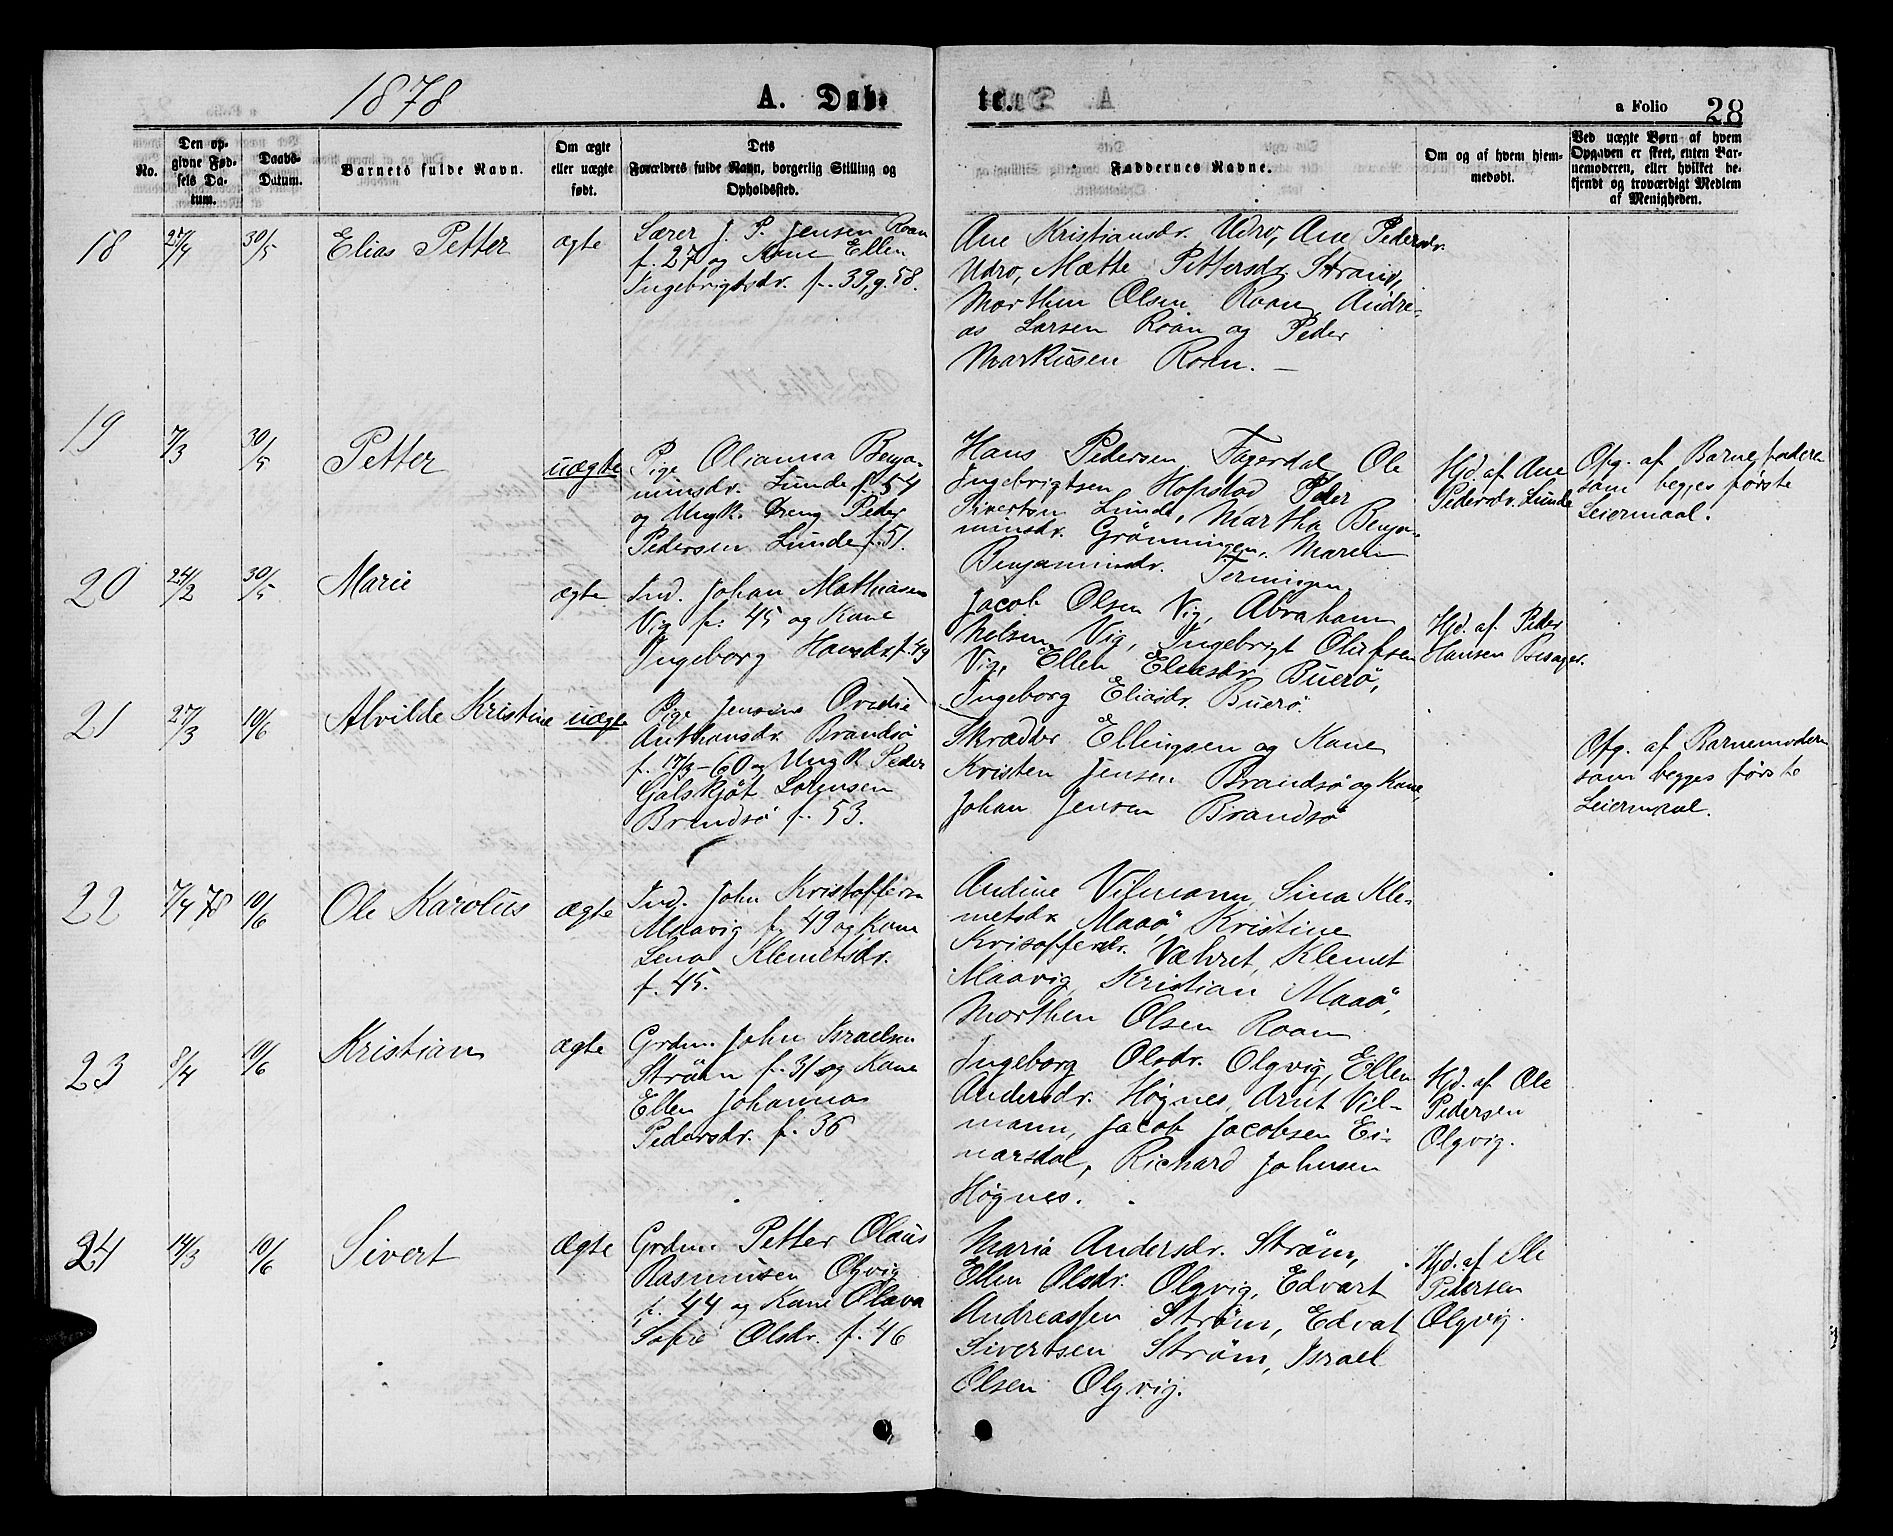 1878
A. Døbte.
a Folio 28
No.
Den opgivne Fødsels Datum.
Daabs-Datum.
Barnets fulde Navn.
Om ægte eller uægte født.
Dets Forældres fulde Navn, borgerlig Stilling og Opholdssted.
Faddernes Navne.
Om og af hvem hjemmedøbt.
Ved uægte Børn af hvem Opgaven er skeet, enten Barnemoderen, eller hvilket bekjendt og troværdigt Medlem af Menigheden.
18
27/4
30/5
Elias Petter
ægte
Lærer J. P. Jensen Roan
f. 27 og Kone Ellen
Ingebrigtsdr. f. 39, g. 58.
Ane Kristiansdr. Udro, Ane Pedersdr.
Udro, Mætte Pettersdr. Strand,
Morthen Olsen Roan, Andre-
as Larsen Roan og Peder
Markusen Roan. —
19
7/3
30/5
Petter
uægte
Pige Olianna Benja-
minsdr. Lunde f. 54
og Ungk. Dreng Peder
Pedersen Lunde f. 51.
Hans Pedersen Fagerdal, Ole
Ingebrigtsen Hofstad, Peder
Sivertsen Lunde, Martha Benja-
minsdr. Grønningen, Maren
Benjaminsdr. Terningen
Hjd. af Ane
Pedersdr. Lunde
Opg. af Barnefadern
som begges første
Leiermaal.
20
24/2
30/5
Marie
ægte
Ind. Johan Mathiasen
Vig f. 45 og Kone
Ingeborg Hansdr. f. 49
Jacob Olsen Vig, Abraham
Nelsen Vig, Ingebrigt Olufsen
Vig, Ellen Eliasdr. Buerø,
Ingeborg Eliasdr. Buerø.
Hjd. af. Peder
Hansen Besager.
21
27/3
10/6
Alvilde Kristine
uægte
Pige Jensine Ovidie
Anthonsdr. Brandsø
f. 17/3 - 60 og Ungk Peder
Galskjøt Lorensen
Brandsø f. 53.
Skrædder Ellingsen og Kone
Kristen Jensen Brandsø og Kone,
Johan Jensen Brandsø
Opg. af Barnemodern
som begges første
Leiermaal.
22
7/4 78
10/6
Ole Karolius
ægte
Ind. John Kristoffersen
Maavig f. 49 og Kone
Lena Klemetsdr.
f. 45.
Andine Vilmann, Sina Kle-
metsdr. Maaø, Kristine
Krisoffersdr. Vælvret, Klemet
Maavig, Kristian Maaø,
Morthen Olsen Roan
23
8/4
10/6
Kristian
ægte
Grdm. John Israelsen
Strøm f. 31 og Kone
Ellen Johanna
Pedersdr. f. 36
Ingeborg Olsdr. Olgvig, Ellen
Andersdr. Høgnes, Arnt Vil-
mann, Jacob Jacobsen Ei-
narsdal, Richard Johnsen
Høgnes.
Hjd. af. Ole
Pedersen
Olgvig.
24
14/3
10/6
Sivert
Ægte
Grdm. Petter Olaus
Rasmusen Olgvig
f. 44 og Kone Olava
Sofie Olsdr. f. 46
Maria Andersdr. Strøm,
Ellen Olsdr. Olgvig, Edvart
Andreassen Strøm, Edvat
Sivertsen Strøm, Israel
Olsen Olgvig.
Hjd. af Ole
Pedersen
Olgvig.